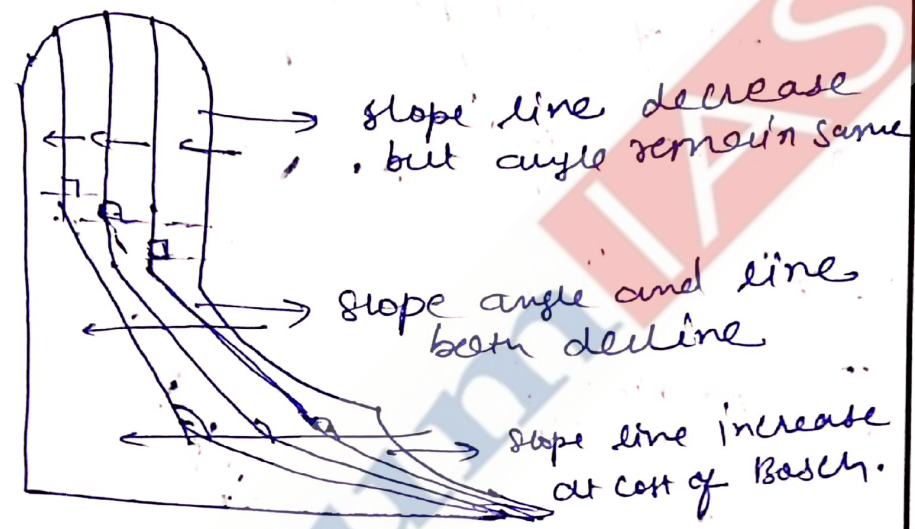 slope line decrease
but angle remain same
slope angle and line
both decline
slope line increase
at cost of Basch.
IAS
um